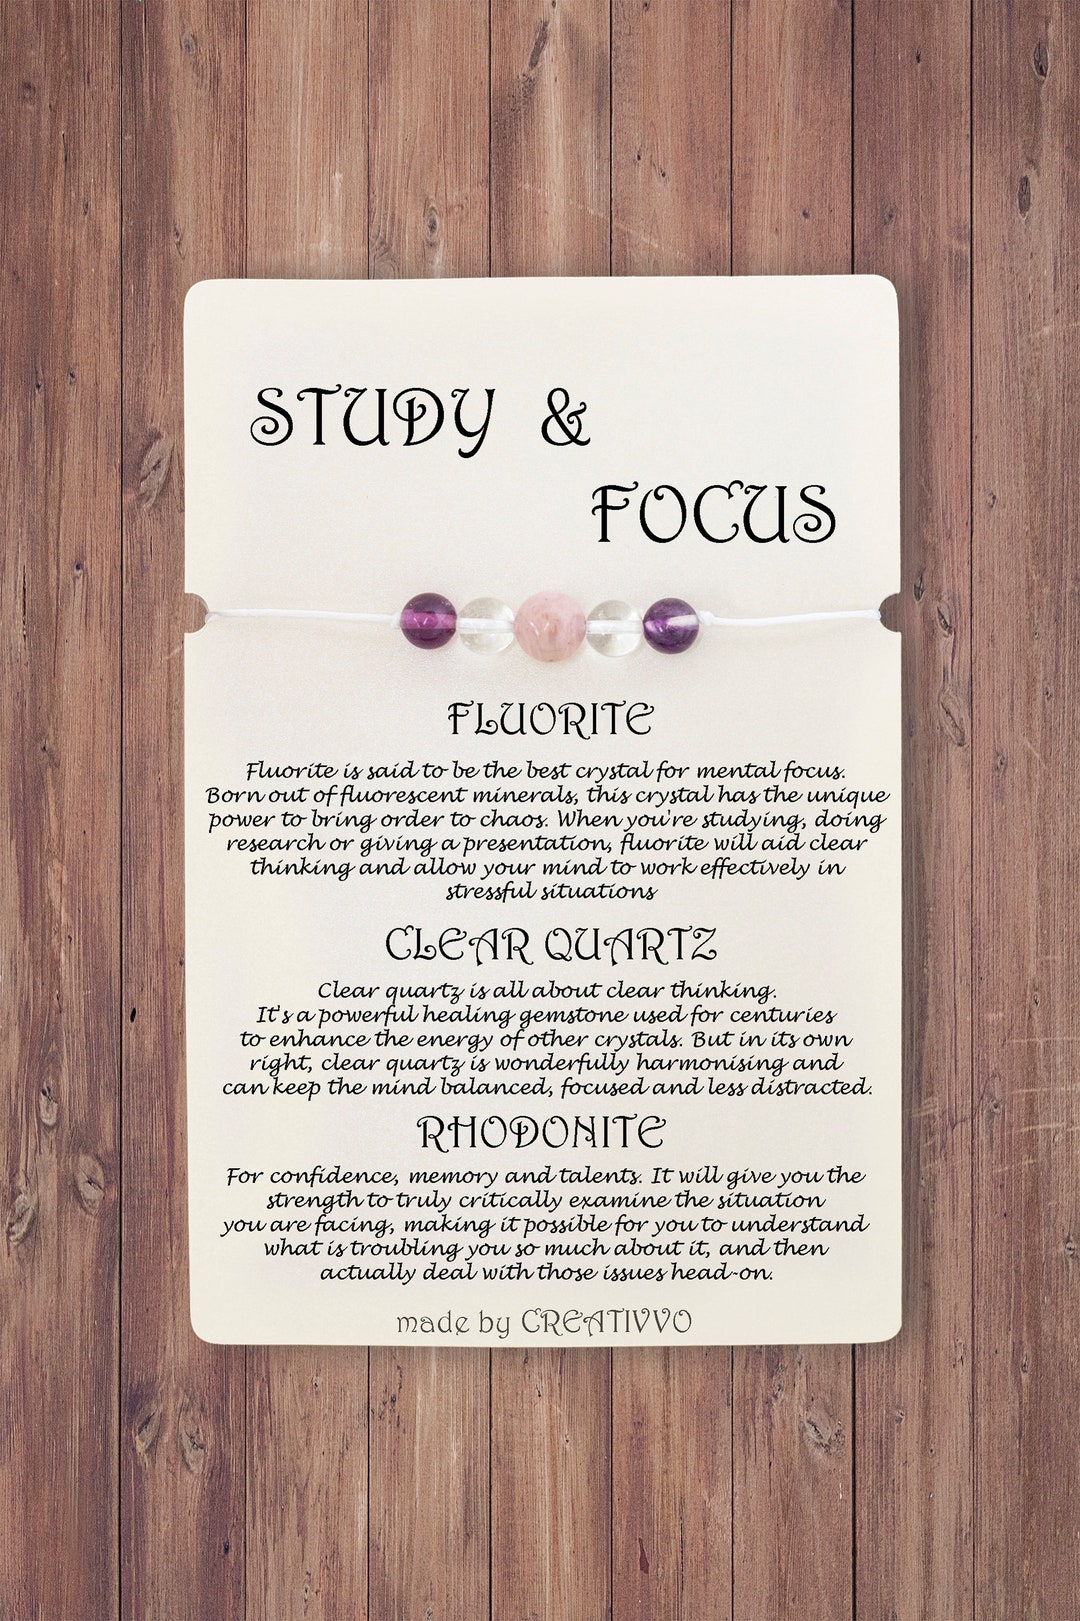 STUDY &
FOCUS
FLUORITE
Fluorite is said to be the best crystal for mental focus.
Born out of fluorescent minerals, this crystal has the unique
power to bring order to chaos. When you're studying, doing
research or giving a presentation, fluorite will aid clear
thinking and allow your mind to work effectively in
stressful situations
CLEAR QUARTZ
Clear quartz is all about clear thinking.
It's a powerful healing gemstone used for centuries
to enhance the energy of other crystals. But in its own
right, clear quartz is wonderfully harmonising and
can keep the mind balanced, focused and less distracted.
RHODONITE
For confidence, memory and talents. It will give you the
strength to truly critically examine the situation
you are facing, making it possible for you to understand
what is troubling you so much about it, and then
actually deal with those issues head-on.
made by CREATIVVO